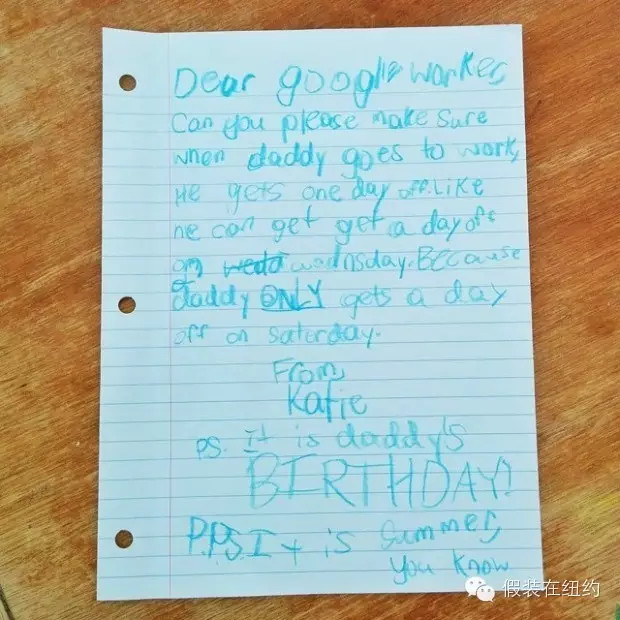 Dear google worker,
Can you please make sure
when daddy goes to work,
He gets one day off. Like
he can get get a day off
on wedd wednsday. Because
daddy ONLY gets a day
off on saturday.
From,
Katie
PS. It is daddy's
BIRTHDAY!
P.P.S. It is summer,
you know
假装在纽约